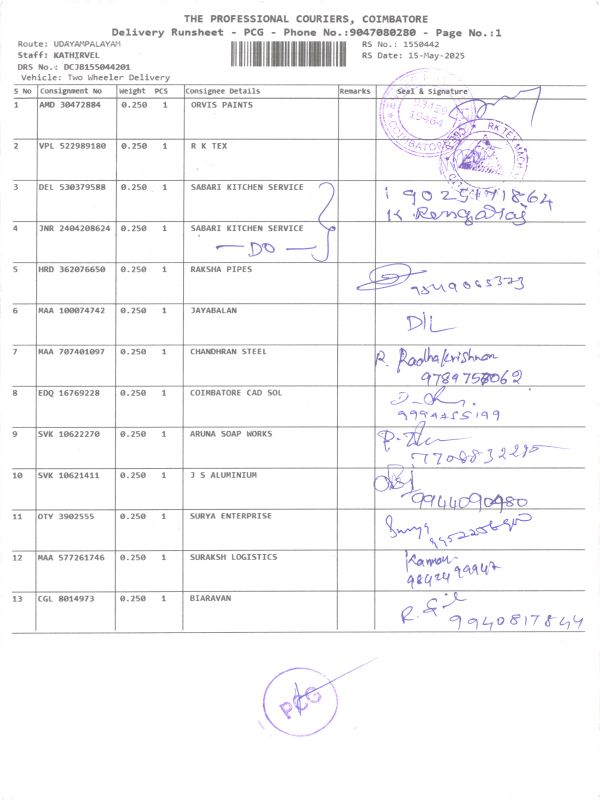 THE PROFESSIONAL COURIERS, COIMBATORE
Delivery Runsheet - PCG - Phone No.:9047080280 - Page No.:1
Route: UDAYAMPALAYAM
RS No.: 1550442
Staff: KATHIRVEL
RS Date: 15-May-2025
DRS No.: DCJ8155044201
Vehicle: Two Wheeler Delivery
S No Consignment No Weight PCS Consignee Details Remarks Seal & Signature
1 AMD 30472884 0.250 1 ORVIS PAINTS
2 VPL 522989180 0.250 1 R K TEX
RK TEX
COIMBATORE
3 DEL 530379588 0.250 1 SABARI KITCHEN SERVICE
K. Rengaraj
4 JNR 2404208624 0.250 1 SABARI KITCHEN SERVICE
DO
5 HRD 362076650 0.250 1 RAKSHA PIPES
6 MAA 100074742 0.250 1 JAYABALAN D/L
7 MAA 707401097 0.250 1 CHANDHRAN STEEL R. Radhakrishnan
8 EDQ 16769228 0.250 1 COIMBATORE CAD SOL
9994455199
9 SVK 10622270 0.250 1 ARUNA SOAP WORKS
10 SVK 10621411 0.250 1 J S ALUMINIUM
9944090980
11 OTY 3902555 0.250 1 SURYA ENTERPRISE Surya
12 MAA 577261746 0.250 1 SURAKSH LOGISTICS
13 CGL 8014973 0.250 1 BIARAVAN
9940817844
PCG